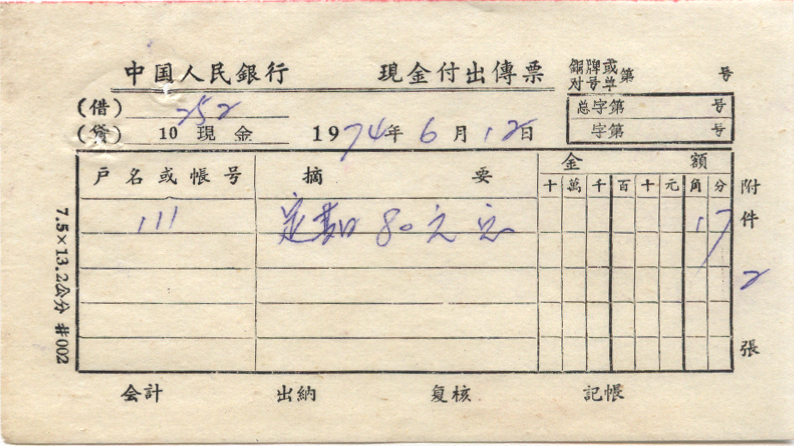 中国人民銀行 現金付出傳票 銅牌或对号单第 号
(借) 252 总字第 号
(貸) 10 現金 1974年6月12日 字第 号
戶名或帳号 摘要 金額
十萬千百十元角分
111 80元 17
附件2張
7.5×13.2公分 #002
会計 出納 复核 記帳